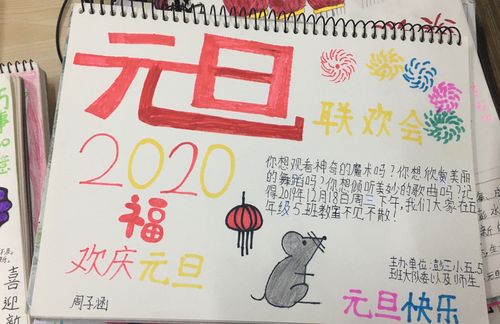 元旦
联欢会
2020
福
欢庆元旦
你想观看神奇的魔术吗？你想欣赏美丽
的舞蹈吗？你想倾听美妙的歌曲吗？记
得2019年12月18日周三下午，我们大家在五
年级5.班教室不见不散！
主办单位：彭三小五.5
班大队委以及师生
周子涵
元旦快乐
喜
迎
新